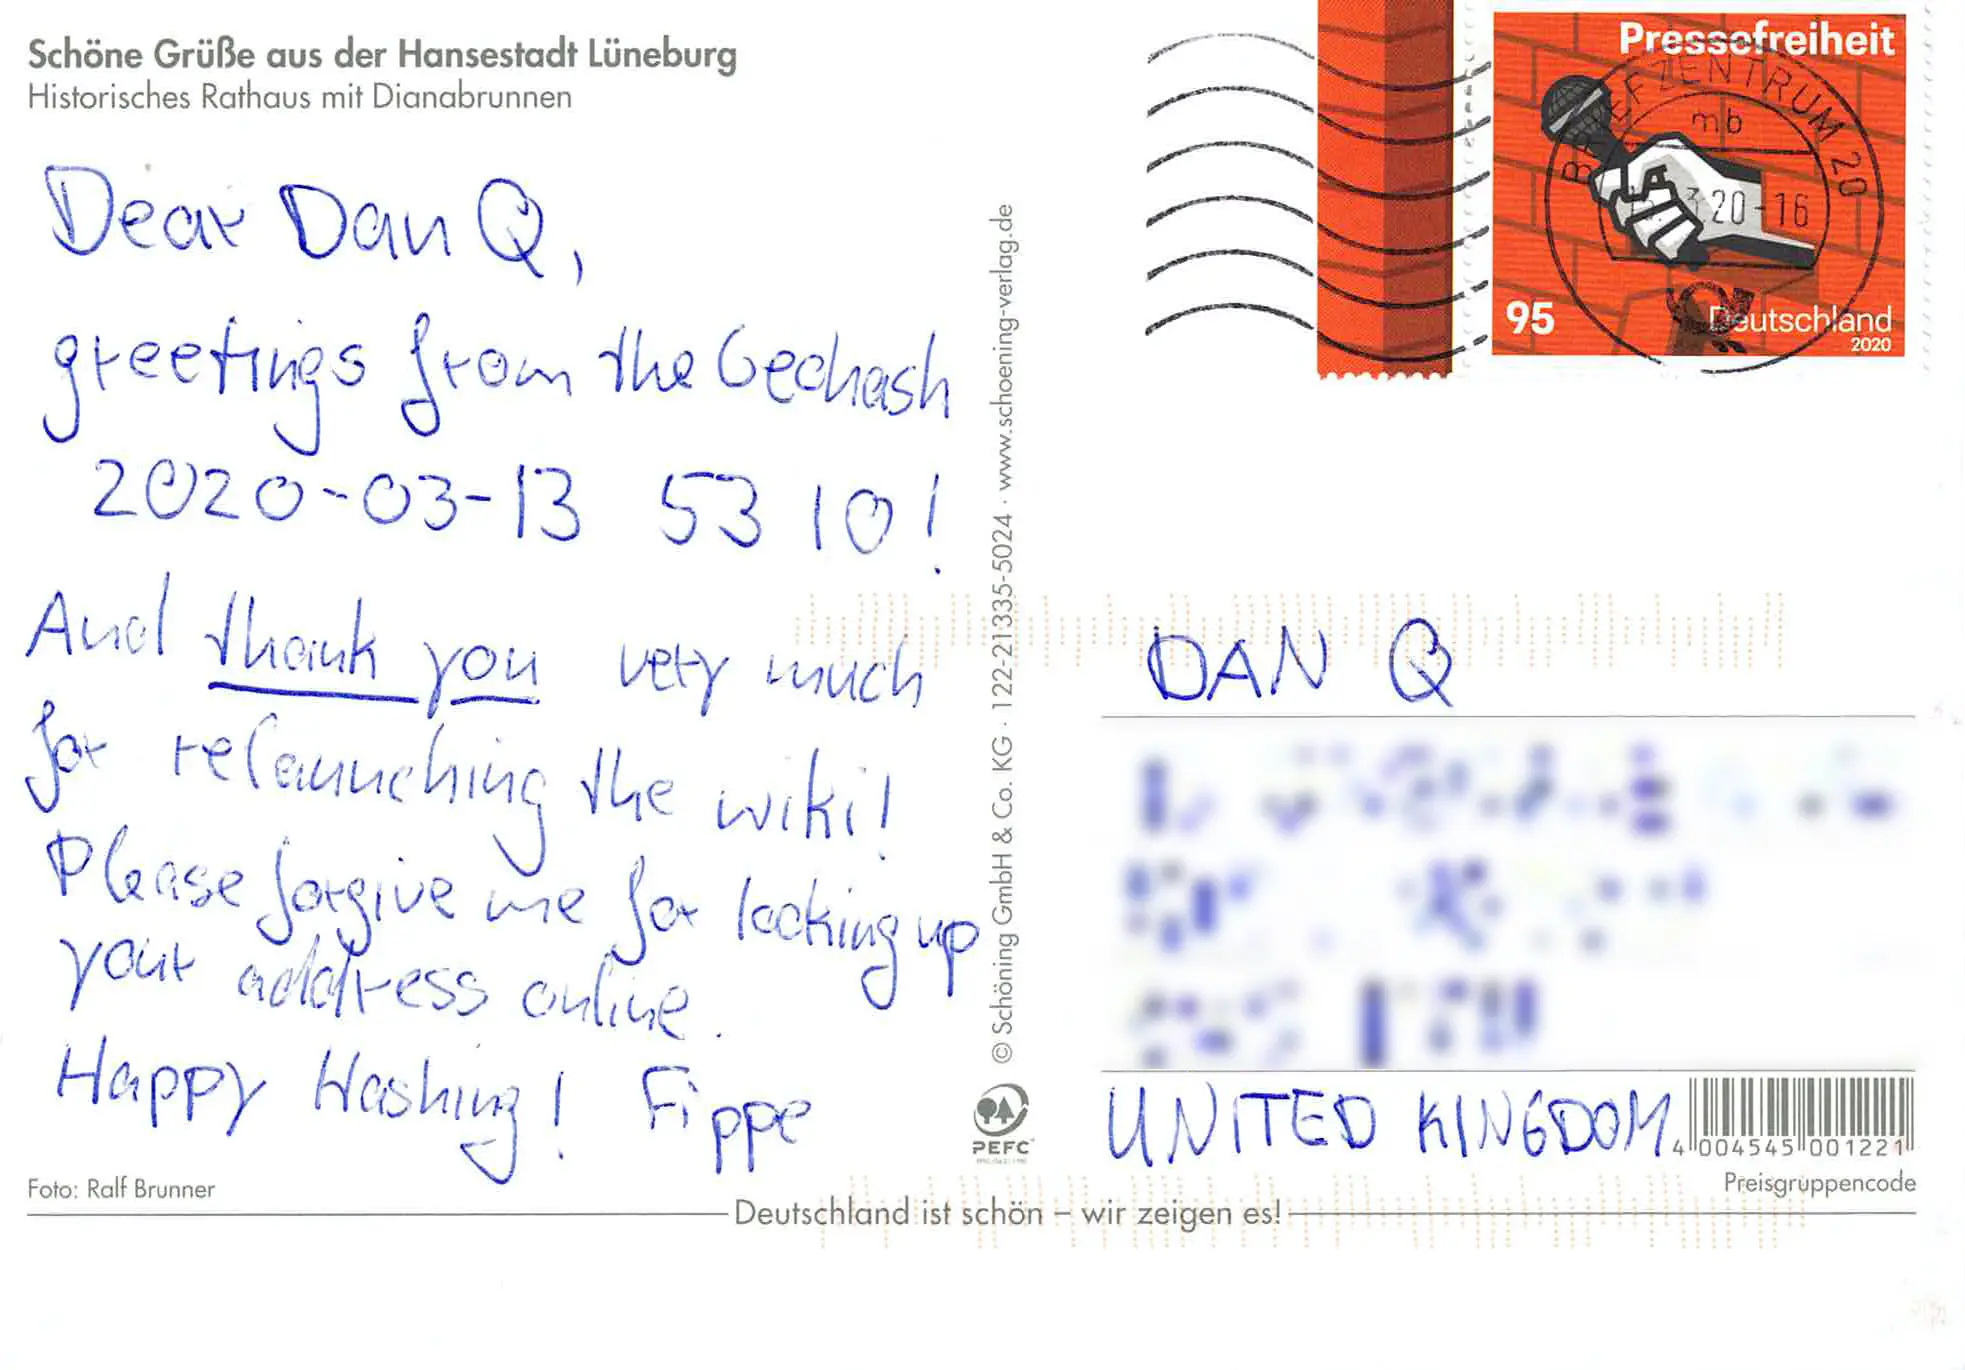 Schöne Grüße aus der Hansestadt Lüneburg
Historisches Rathaus mit Dianabrunnen
Dear Dan Q,
greetings from the Geohash
2020-03-13 53 10!
And thank you very much
for relaunching the wiki!
Please forgive me for looking up
your address online.
Happy Hashing! Fippe
Foto: Ralf Brunner
© Schöning GmbH & Co. KG · 122-21335-5024 · www.schoening-verlag.de
PEFC
Pressefreiheit
BRIEFZENTRUM 20
mb
20-16
95
Deutschland
2020
DAN Q
UNITED KINGDOM
4 004545 001221
Preisgruppencode
Deutschland ist schön – wir zeigen es!